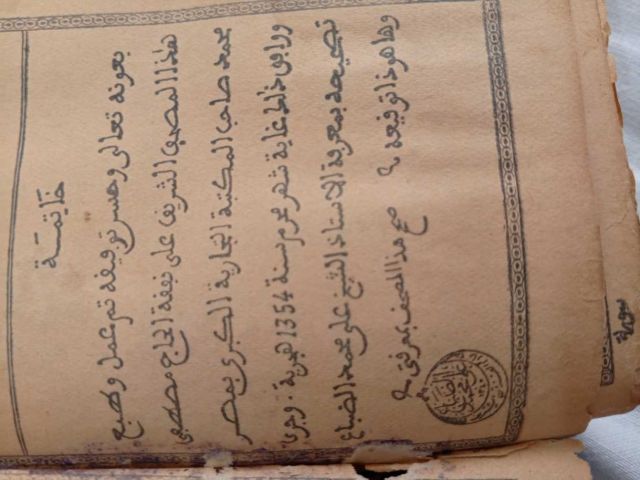 خَاتِمَة
بعونه تعالى وحسن توفيقه تم عمل وطبع
هذا المصحف الشريف على نفقة الحاج مصطفى
محمد صاحب المكتبة التجارية الكبرى بمصر
ووافق ذلك غاية شهر محرم سنة 1354 هجرية . وجرى
تصحيحه بمعرفة الاستاذ الشيخ على محمد الضباع
وها هو ذا توقيعه
صح هذا المصحف بمعرفتي
سورة